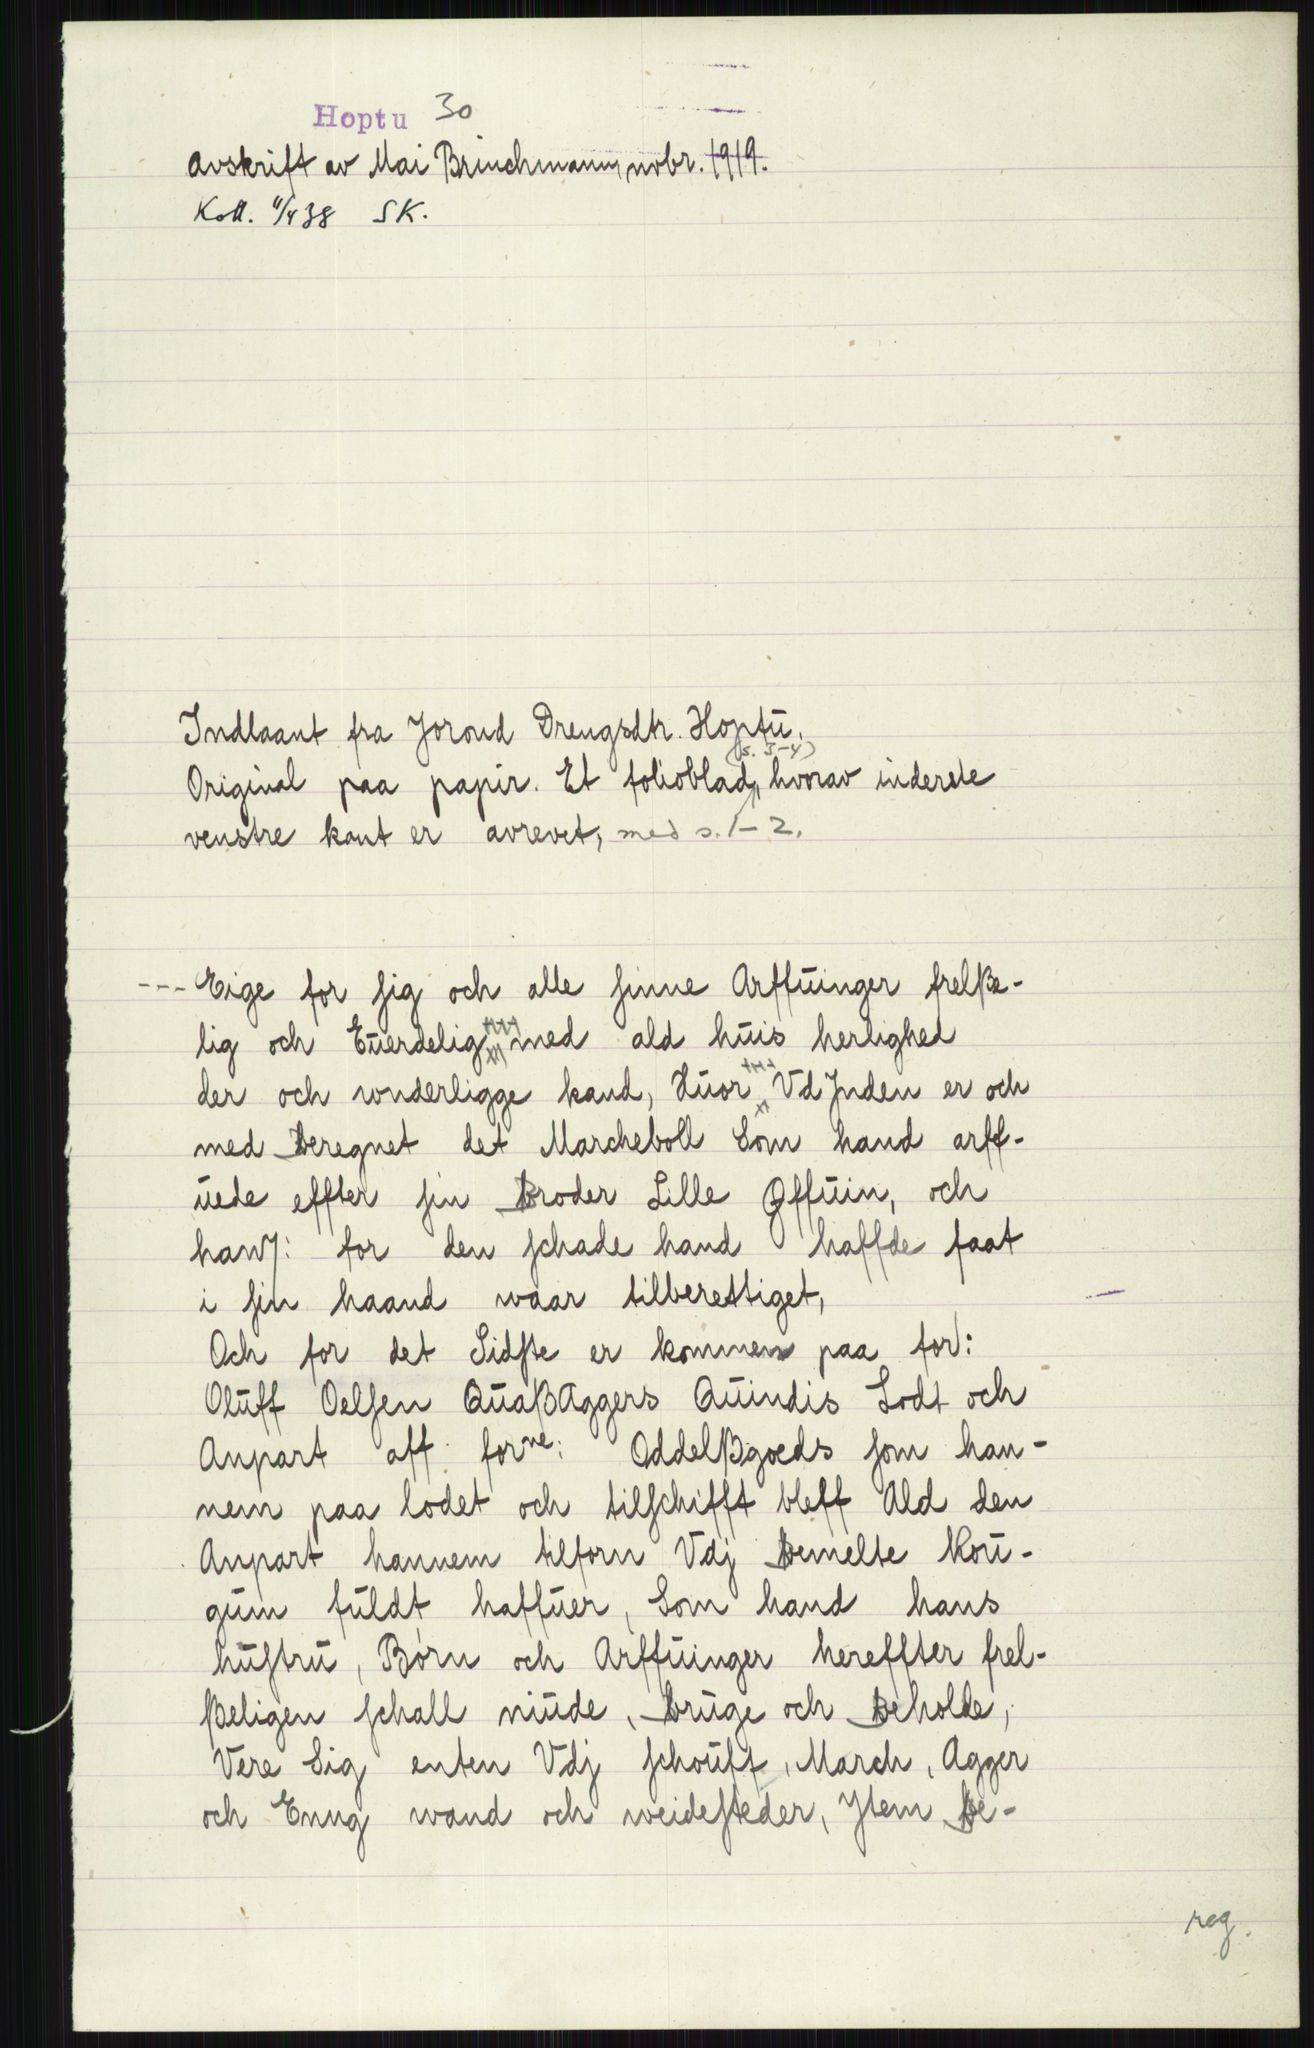 Hoptu 30
Avskrift av Mai Brinchmann, nvbr. 1919.
Koll. 4/4 38 SK.
Indlaant fra Joroud Drengsdtr. Hoptŭ.
(s. 3-4)
Original paa papir. Et folioblad, hvorav inderste
venstre kant er avrevet, med s. 1-2.
--- Eige for sig och alle sinne Arffŭinger frelße-
lig och Eŭerdelig med ald hŭis herlighed
der och wnderligge kand, Hŭor Vd Jnden er och
med Beregnet det Marcheboll Som hand arff-
ŭede effter sin Broder Lille Øffŭin, och
hanʒ: for den schade hand haffde faat
i sin haand waar tilberettiget,
Och for det Sidste er kommen paa for:
Olŭff Oelsen Qŭaßaggers Qŭindis Lodt och
Anpart aff forne: Oddelßgoeds som han-
nem paa lodet och tilschifft bleff Ald den
Anpart hannem tilforn Vdj Bemelte Koŭ-
gŭm fŭldt haffŭer, Som hand hans
hŭstrŭ, Børn och Arffŭinger hereffter frel-
ßeligen schall niŭde, Brŭge och Beholde,
Vere Sig enten Vdj schoŭff, March, Agger
och Enng wand och weidesteder, Jtem Be-
reg.